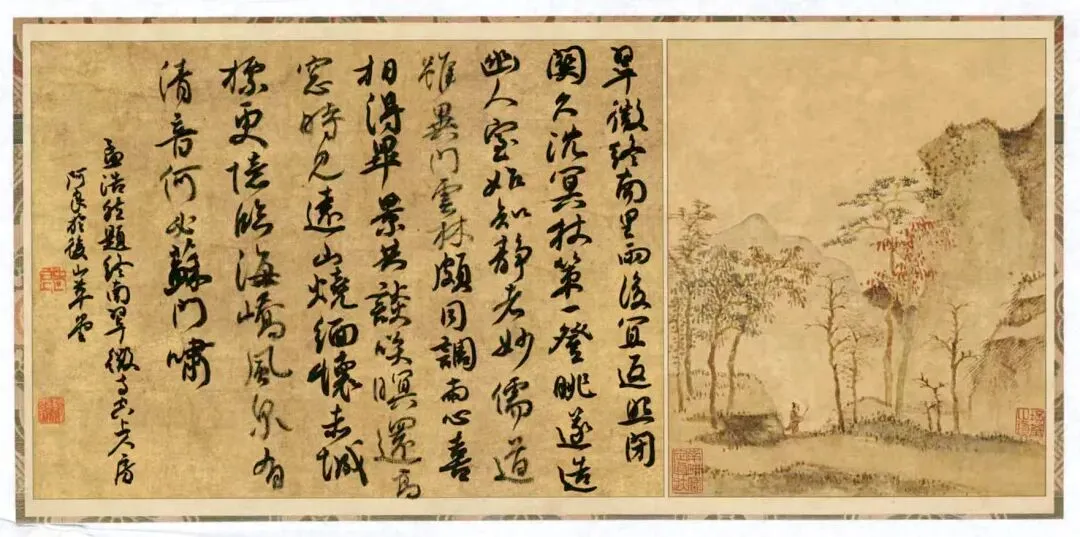 翠微終南里雨後宜返照閉
關久沈冥杖策一登眺遂造
幽人室始知靜者妙儒道
雖異門雲林頗同調兩心喜
相得畢景共談笑暝還高
窓時見遠山燒緬懷赤城
標更憶臨海嶠風泉有
清音何必蘇門嘯
孟浩然題終南翠微寺空上人房
阿良於後山草堂